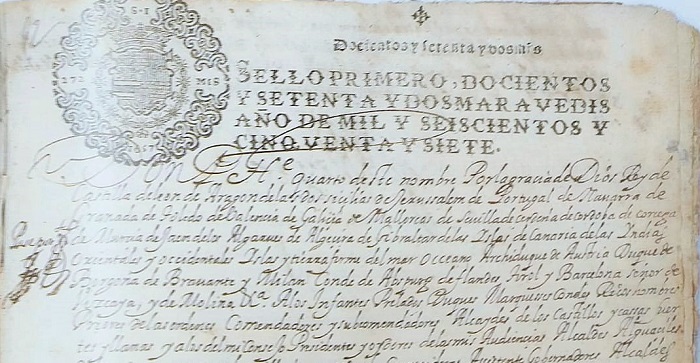 S · I
272 MIS
1657
Docientos y setenta y dos mrs
SELLO PRIMERO, DOCIENTOS
Y SETENTA Y DOS MARAVEDIS
AÑO DE MIL Y SEISCIENTOS Y
CINQVENTA Y SIETE.
quarto deste nombre Por la gracia de Dios Rey de
Castilla de leon de Aragon de las dos sicilias de Jerussalem de Portugal de Navarra de
Granada de Toledo de Valencia de Galicia de Mallorcas de Sevilla de Cerdeña de Cordova de Corcega
de Murcia de Jaen de los Algarves de Algecira de Gibraltar de las Islas de Canaria de las Indias
Orientales y occidentales Islas y tierra firme del mar Occeano Archiduque de Austria Duque de
Borgoña de Bravante y Milan Conde de Abspurg de flandes Tirol y Barcelona Señor de
Vizcaya, y de Molina &ª. A los Infantes Prelados Duques Marqueses Condes Ricos hombres
Priores de las ordenes Comendadores y subcomendadores Alcaydes de los Castillos y cassas fuer
tes y llanas y a los del mi Consejo Presidentes y oydores de las mis Audiencias Alcaldes Alguaciles